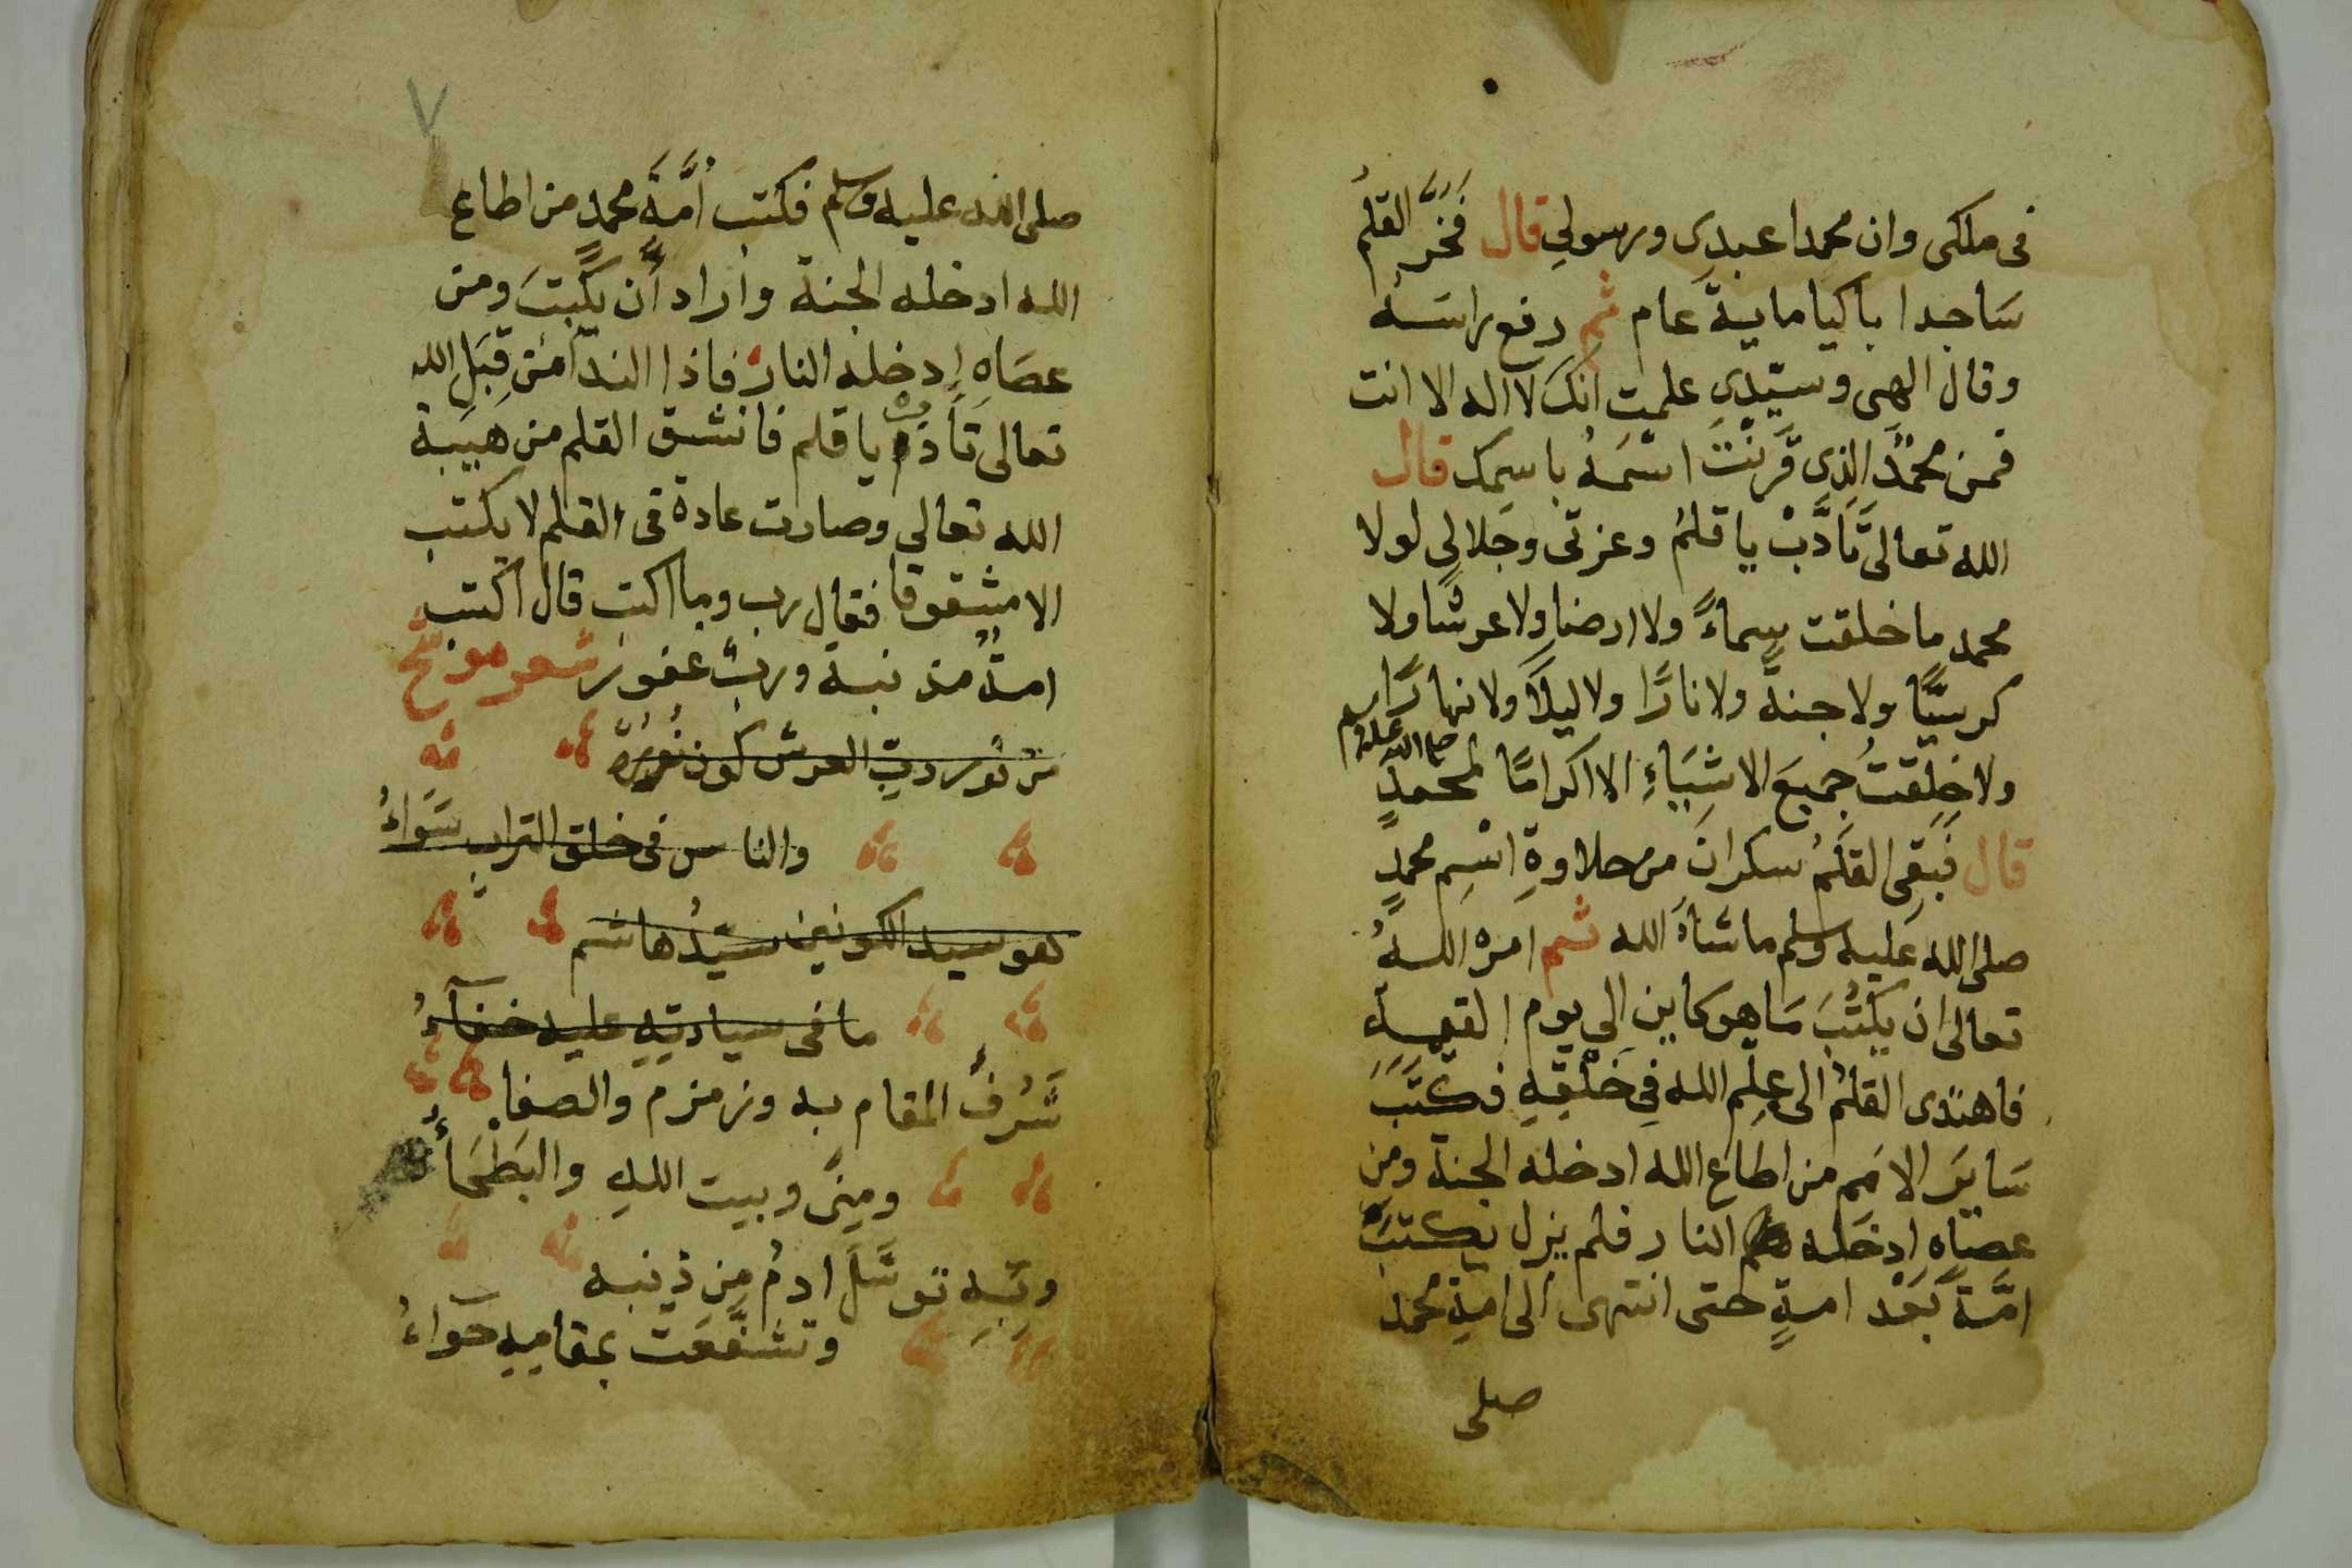 في ملكى وان محمدا عبدِى ورسولِي قال فَخَرَّ القلمُ
سَاجدا باكيا ماية عَام ثم رفع راسَه
وقال الهى وسيّدِي علمت انكَ لا اله الا انت
فمن محمدٌ الذِى قَرَنْتَ اسْمَهُ باسمِك قال
الله تعالى تَأَدَّبْ يا قلمُ وعزتى وجَلالي لولا
محمد ما خلقت سماءً ولا ارضا ولا عرشا ولا
كرسيًّا ولا جنةً ولا نارًا ولا ليلًا ولا نهارًا
ولا خلقتُ جميعَ الاشيَاءِ الا اكرامًا لمحمدٍ صلى الله عليه وسلم
قال فَبَقِى القلَمُ سكرانَ من حلاوةِ اسْمِ محمدٍ
صلى الله عَليه وسلم ما شَاءَ الله ثم امره اللهُ
تعالى ان يَكْتُبَ مَا هو كاين الي يوم القيمةِ
فاهتدى القلمُ الى عِلْمِ الله فِي خَلْقِهِ فكَتَبَ
سَايرَ الامَم من اطاع الله ادخله الجنة ومن
عصاهِ ادخَله النار فلم يزل يكتبُ
امَّةً بَعْد امةٍ حتى انتهى الى امةِ محمد
صلى
٧
صلى الله عليه وسلم فكتب اُمَّةَ محمدٍ من اطاع
الله ادخله الجنة واراد أن يكتبَ ومن
عصَاهِ ادخله النار فاذا الندا مِن قِبَلِ الله
تعالى تَأَدَّبْ يا قلم فانشق القلم من هَيبة
الله تعالي وصارت عادة فى القلم لا يكتب
الا مشقوقا فقال رب وما اكتب قال اكتب
امةٌ مذنبة وربٌ غفور شعر موشح
من نُور ربِ العرش كون نُورُهُ
والناس فى خلق الترابِ سَوَاءُ
هو سيد الكونين سيّدُ هاشم
ما فى سيادتِهِ عليه خفآءُ
شَرُفَ المقام به وزمزم والصفا
ومِنًى وبيت اللهِ والبَطْحَاءُ
وبِهِ توسَّلَ ادمُ مِن ذنبه
وتشفَّعَت بمقامِهِ حَوآءُ